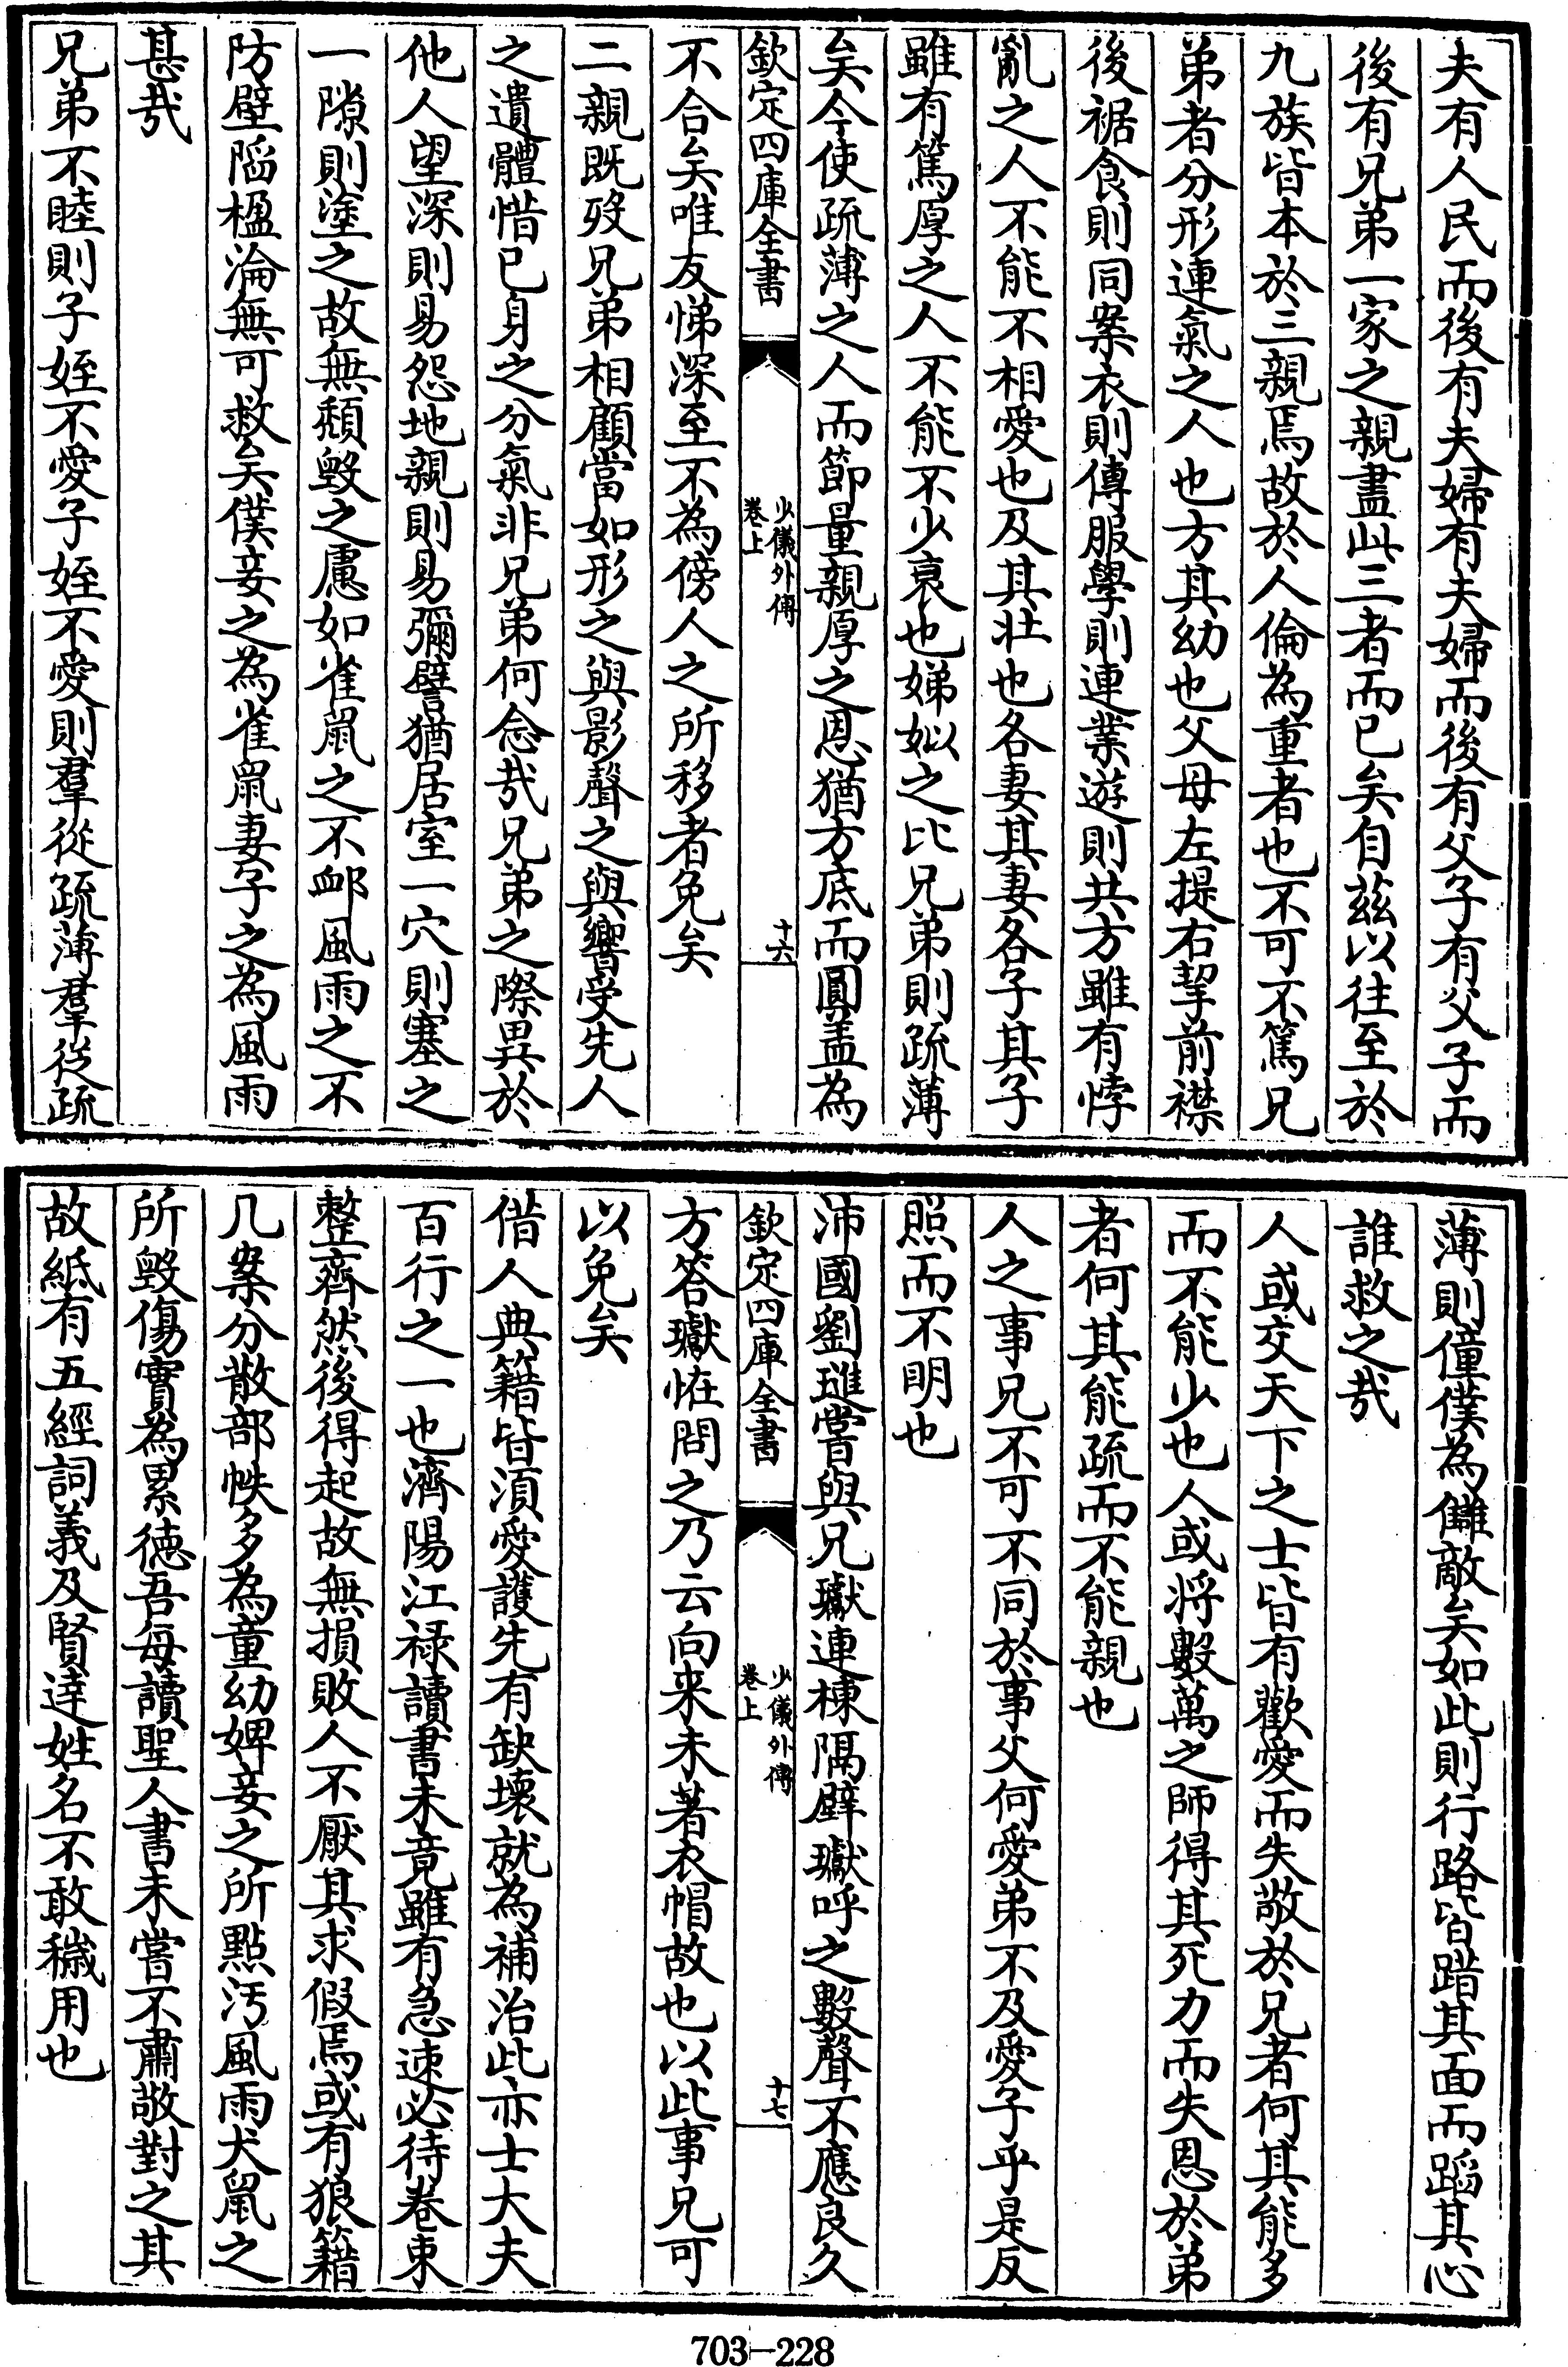 夫有人民而後有夫婦有夫婦而後有父子有父子而
後有兄弟一家之親盡此三者而已矣自兹以往至於
九族皆本於三親焉故於人倫為重者也不可不篤兄
弟者分形連氣之人也方其幼也父母左提右挈前襟
後裾食則同案衣則傳服學則連業遊則共方雖有悖
亂之人不能不相愛也及其壯也各妻其妻各子其子
雖有篤厚之人不能不少衰也娣姒之比兄弟則疏薄
矣今使疏薄之人而節量親厚之恩猶方底而圓盖為
欽定四庫全書
少儀外傳
卷上
十六
不合矣唯友悌深至不為傍人之所移者免矣
二親既歿兄弟相顧當如形之與影聲之與響受先人
之遺體惜已身之分氣非兄弟何念哉兄弟之際異於
他人望深則易怨地親則易彌譬猶居室一穴則塞之
一隙則塗之故無頽毁之慮如雀鼠之不衈風雨之不
防壁陷楹淪無可救矣僕妾之為雀鼠妻子之為風雨
甚哉
兄弟不睦則子姪不愛子姪不愛則羣從疏薄羣從疏
薄則僮僕為讎敵矣如此則行路皆踖其面而蹈其心
誰救之哉
人或交天下之士皆有歡愛而失敬於兄者何其能多
而不能少也人或将數萬之師得其死力而失恩於弟
者何其能疏而不能親也
人之事兄不可不同於事父何愛弟不及愛子乎是反
照而不明也
沛國劉璡嘗與兄瓛連棟隔壁瓛呼之數聲不應良久
欽定四庫全書
少儀外傳
卷上
十七
方答瓛恠問之乃云向来未著衣帽故也以此事兄可
以免矣
借人典籍皆須愛護先有缺壊就為補治此亦士大夫
百行之一也濟陽江禄讀書未竟雖有急速必待卷束
整齊然後得起故無損敗人不厭其求假焉或有狼籍
几案分散部帙多為童幼婢妾之所點汚風雨犬鼠之
所毁傷實為累徳吾每讀聖人書未嘗不肅敬對之其
故紙有五經詞義及賢逹姓名不敢穢用也
703-228